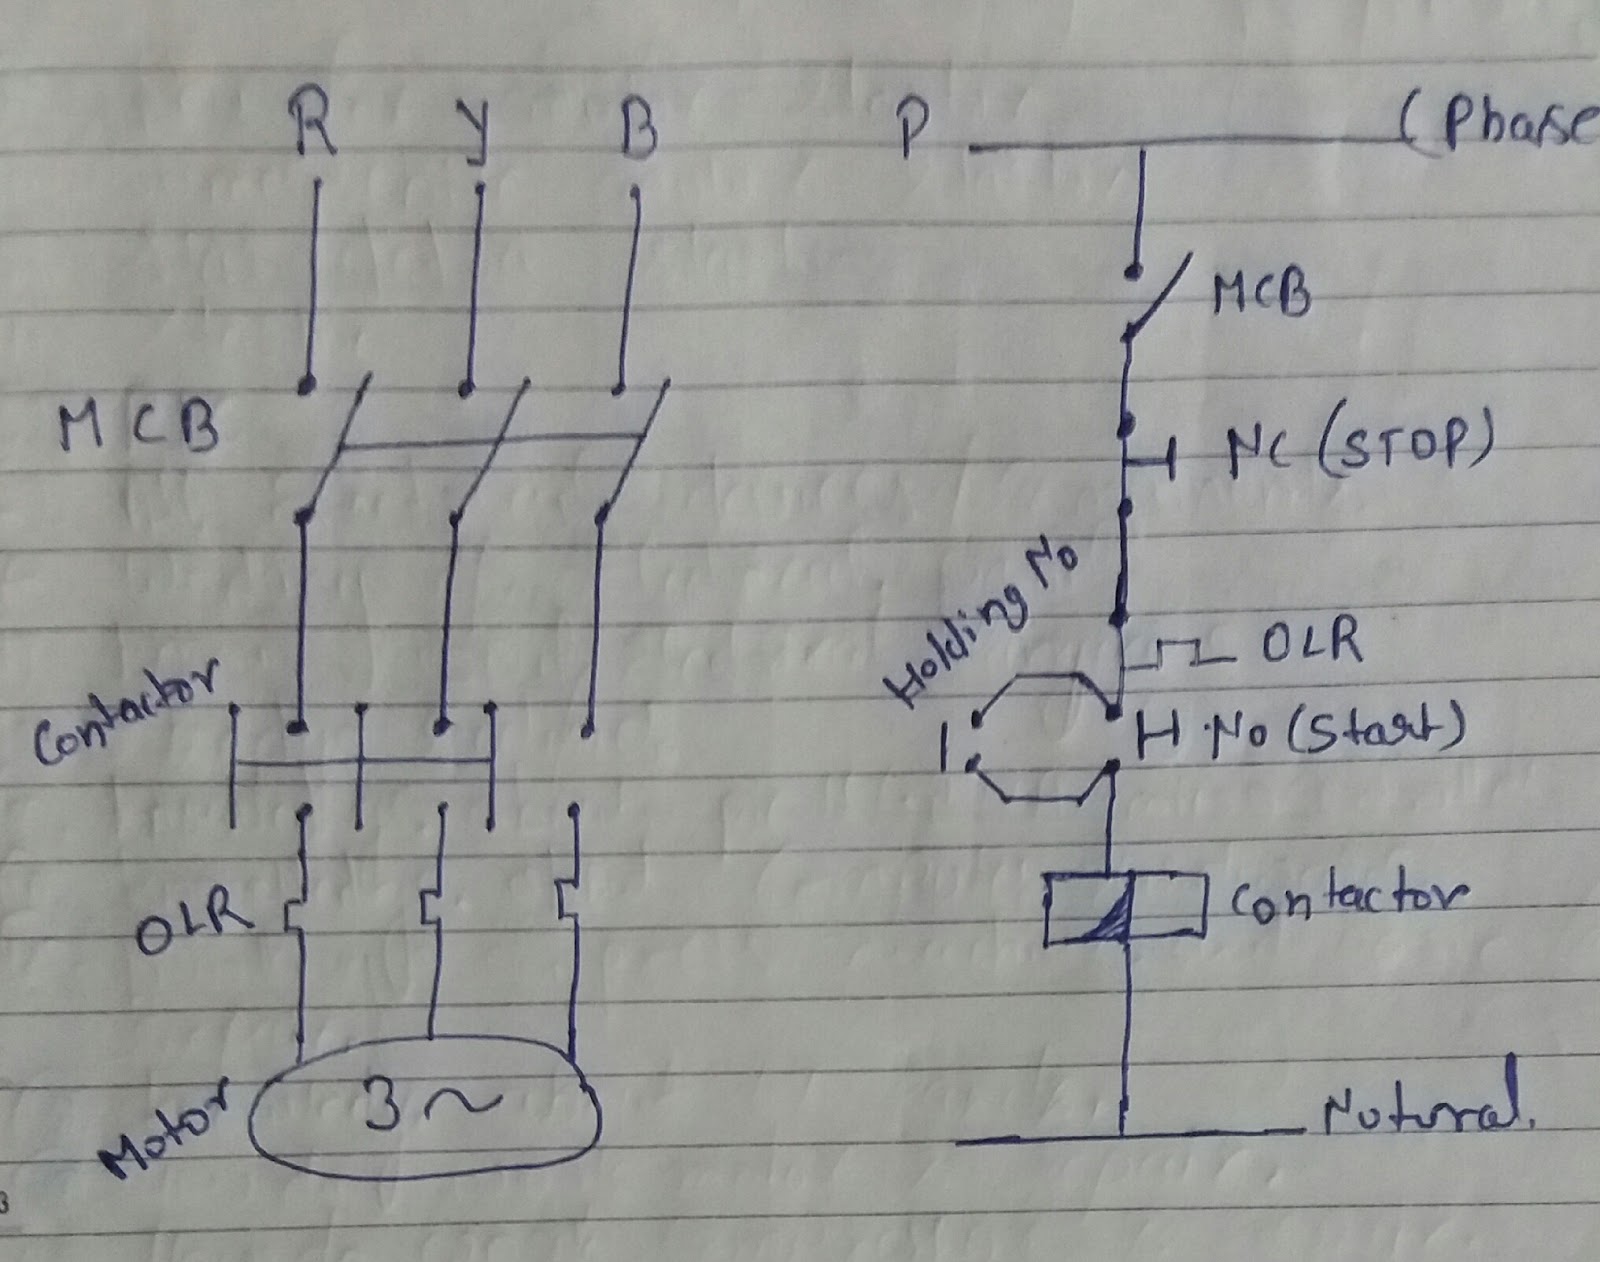 R Y B
MCB
Contactor
OLR
Motor
3 ~
P (Phase
MCB
NC (STOP)
Holding No
OLR
No (Start)
Contactor
Nutural.
3